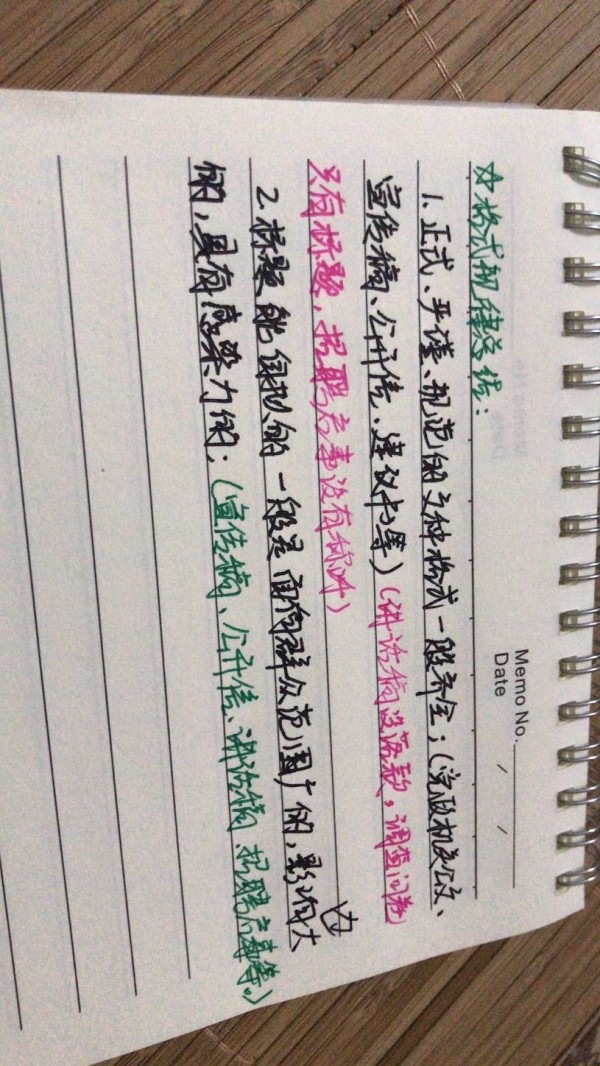 Memo No.
Date / /
☆格式规律总结：
1.正式、严谨、规范的文种格式一般齐全；（党政机关公文、
宣传稿、公开信、建议书等）（讲话稿没落款，调查问卷
只有标题，招聘启事没有称呼）
2.标题能自拟的一般是面向群众范围广的，影响大
的，具有感染力的；（宣传稿、公开信、讲话稿、招聘启事等。）